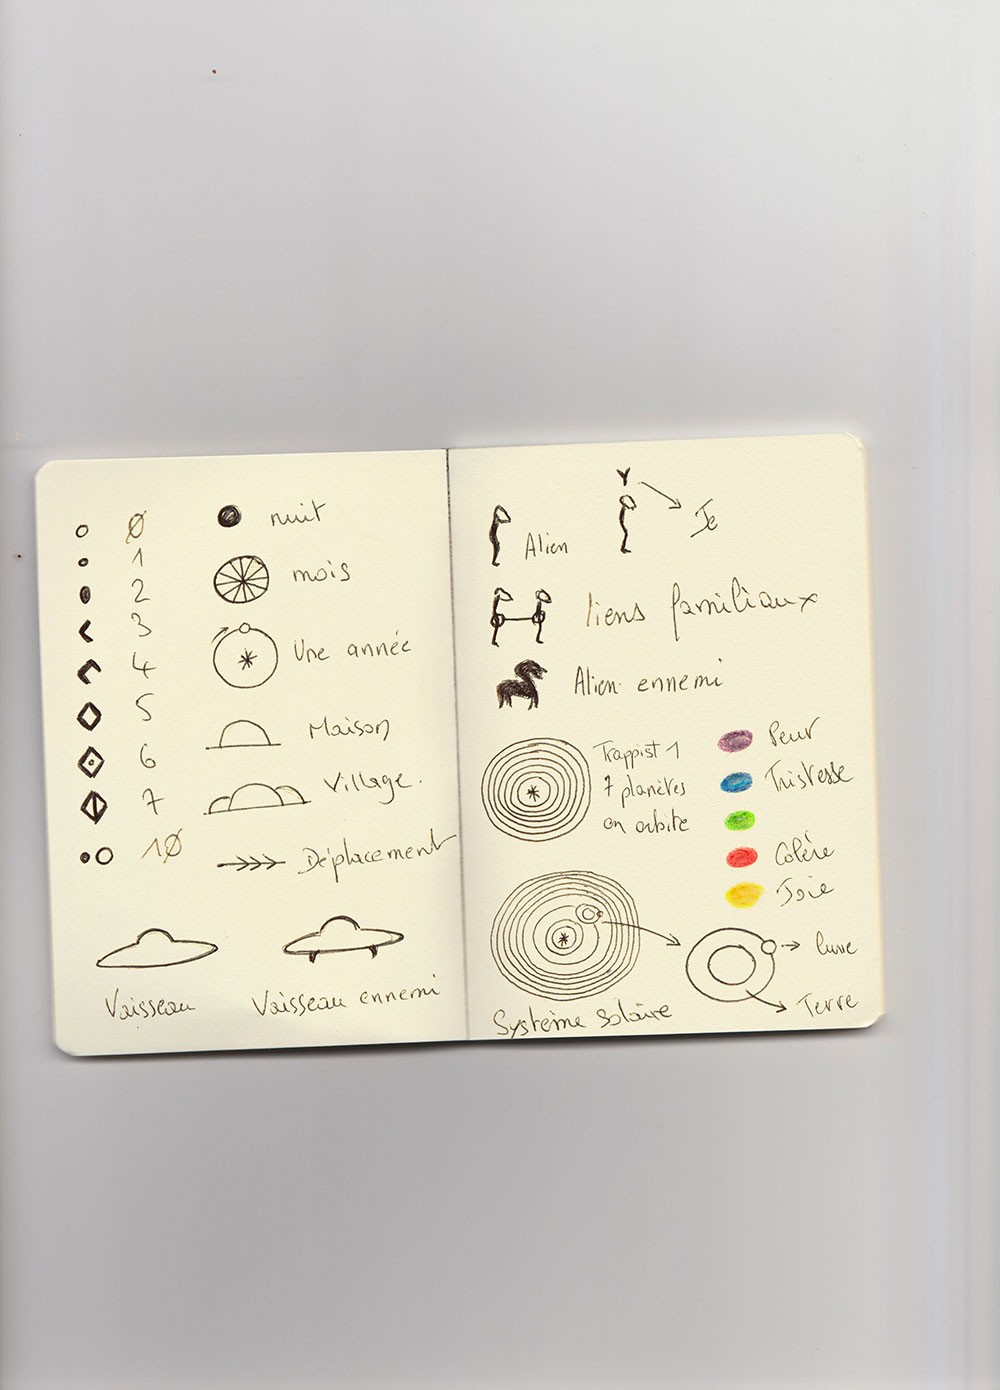 Ø
1
2
3
4
5
6
7
1Ø
nuit
mois
Une année
Maison
Village.
Déplacement
Vaisseau
Vaisseau ennemi
Alien
Je
liens familiaux
Alien ennemi
Trappist 1
7 planètes
en orbite
Peur
Tristesse
Colère
Joie
Système solaire
lune
Terre